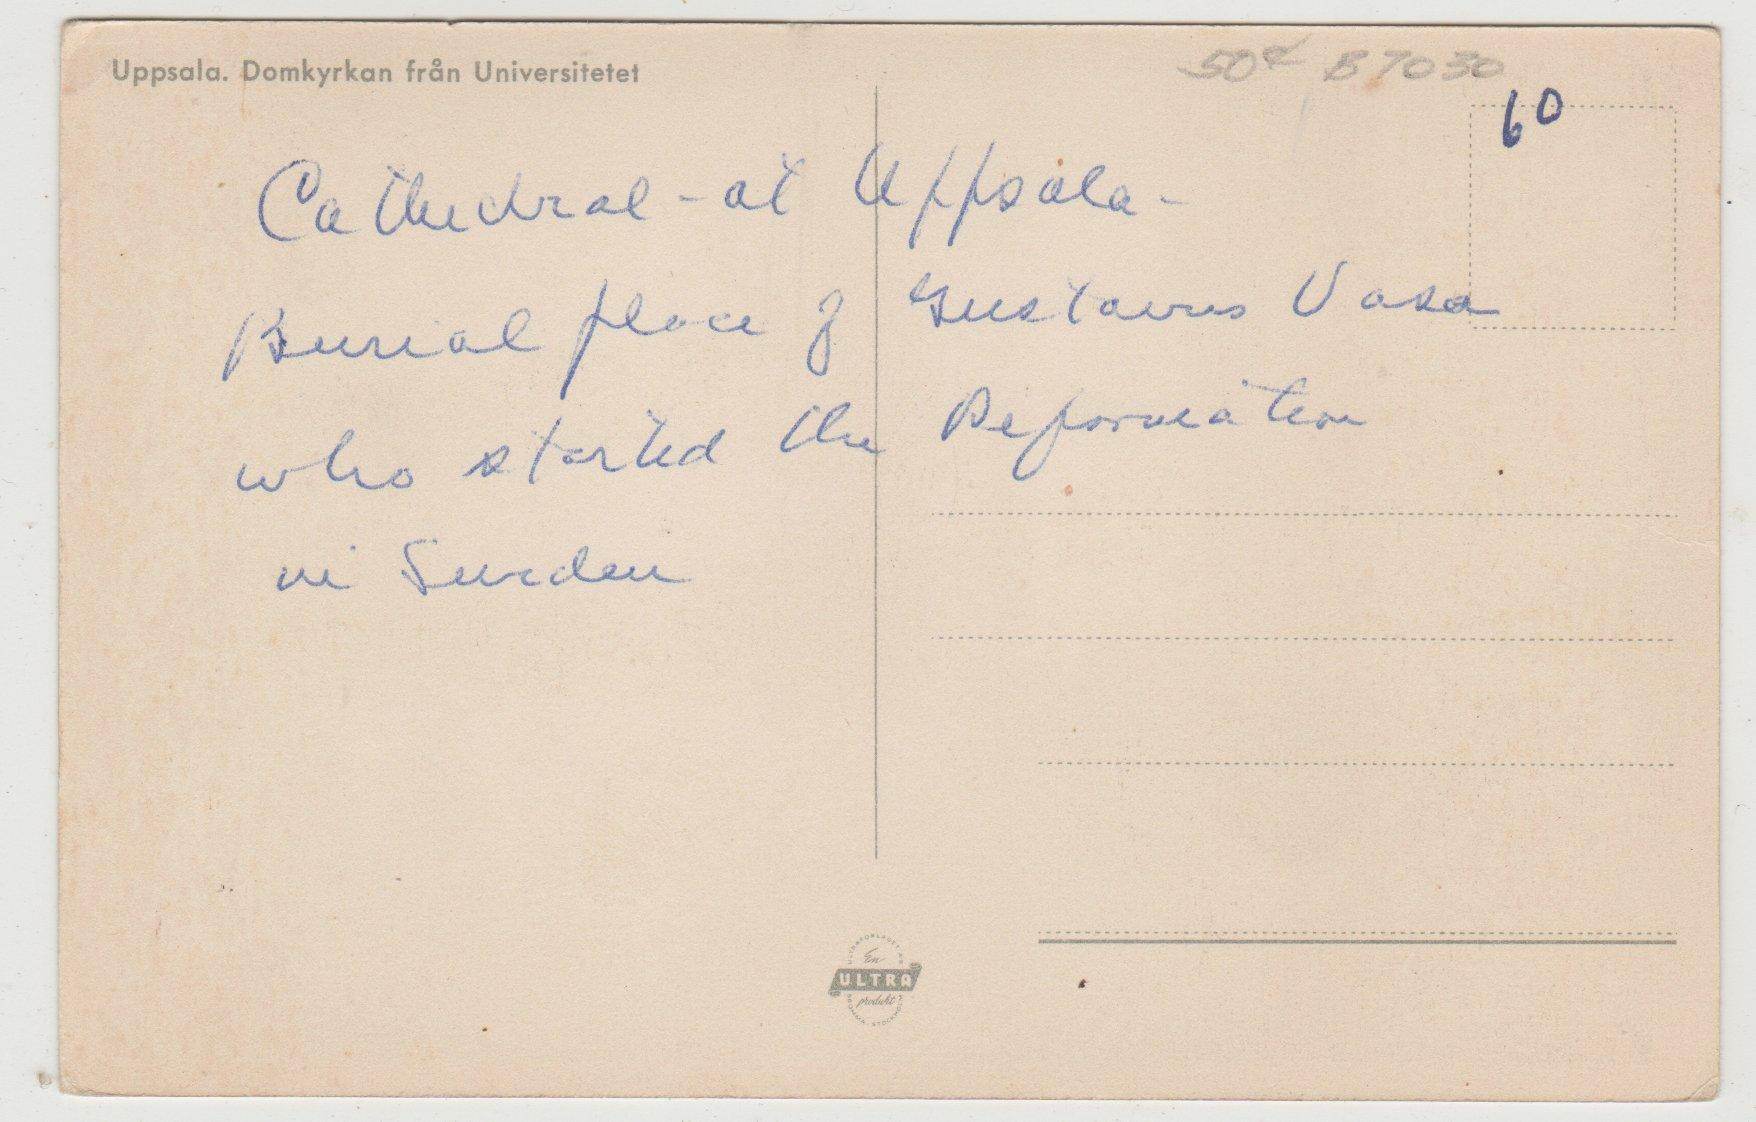 Uppsala. Domkyrkan från Universitetet
50¢ B7030
60
Cathedral - at Uppsala -
Burial place of Gustavus Vasa
who started the Reformation
in Sweden
En
ULTRA
produkt